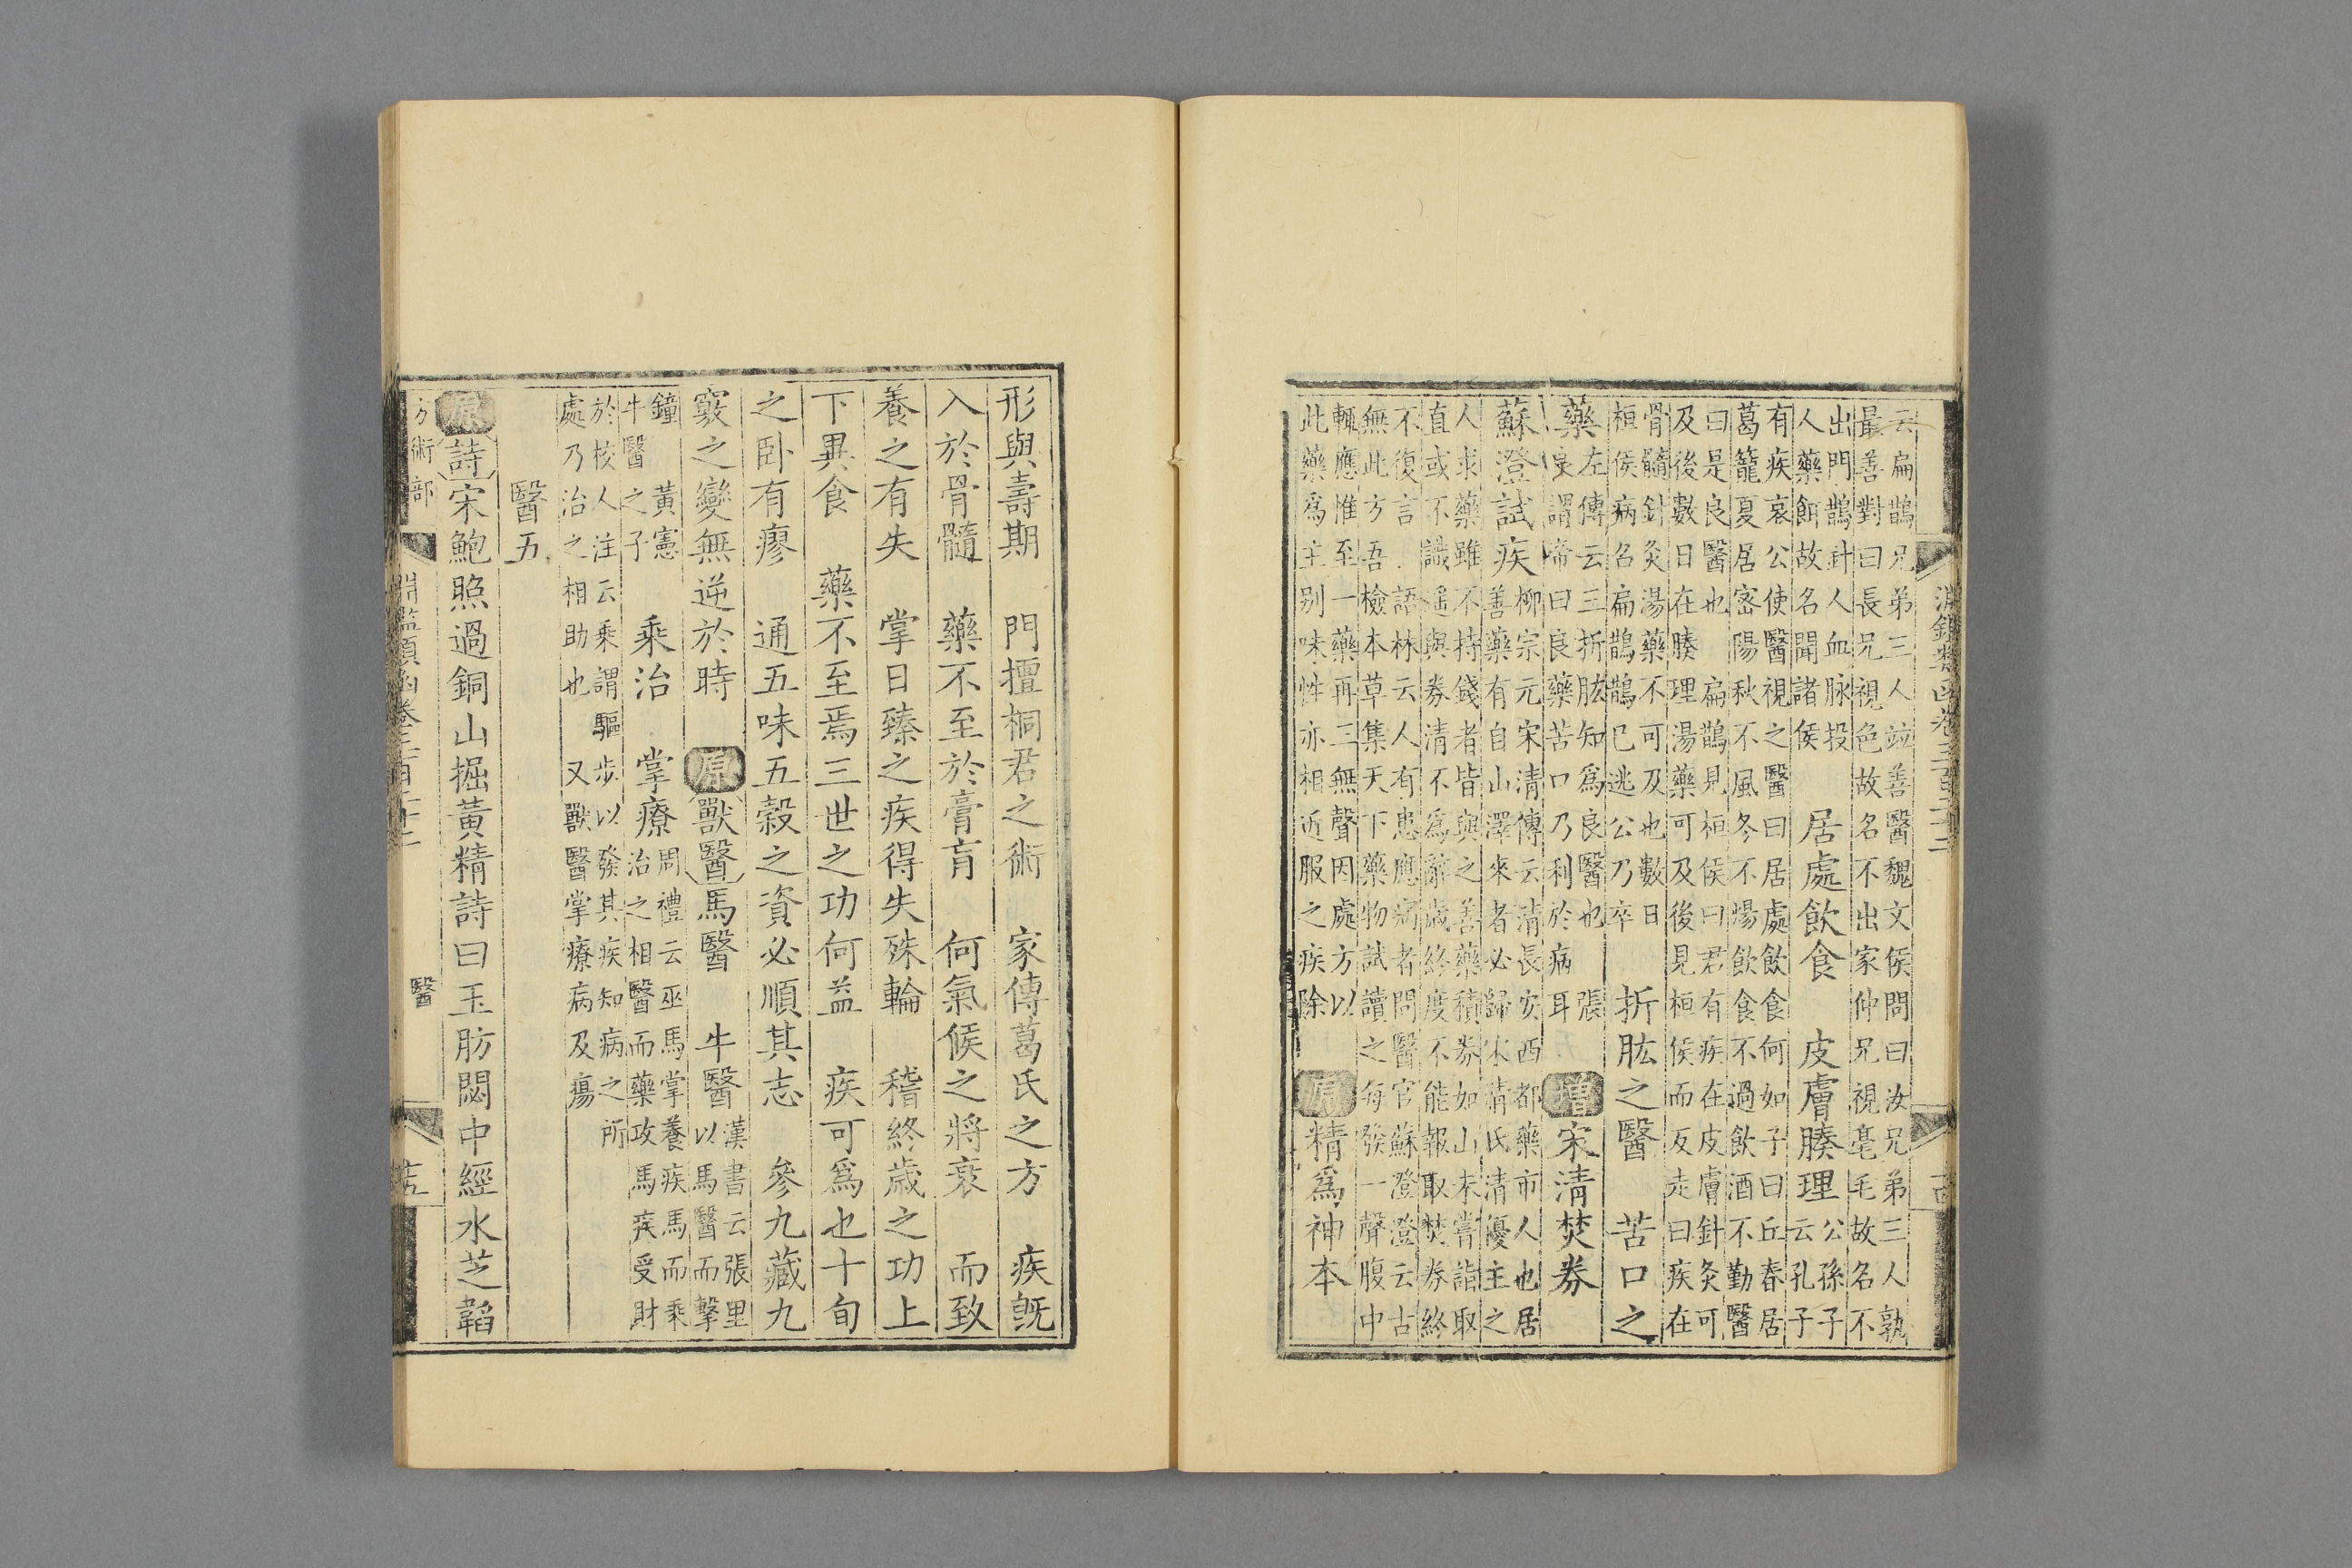 淵鑑類函卷三百二十二 十四
云扁鵲兄弟三人竝善醫魏文侯問曰汝兄弟三人孰
最善對曰長兄視色故名不出家仲兄視毫毛故名不
出門鵲針人血脉投
人藥餌故名聞諸侯
居處飲食 皮膚腠理
公孫子
云孔子
有疾哀公使醫視之醫曰居處飲食何如子曰丘春居
葛籠夏居密陽秋不風冬不煬飲食不過飲酒不勤醫
曰是良醫也 扁鵲見桓侯曰君有疾在皮膚針灸可
及後數日在腠理湯藥可及後見桓侯而反走曰疾在
骨髓針灸湯藥不可及也數日
桓侯病名扁鵲鵲已逃公乃卒
折肱之醫 苦口之
藥
左傳云三折肱知爲良醫也 張
良謂帝曰良藥苦口乃利於病耳
增 宋清焚券
蘇澄試疾
柳宗元宋清傳云清長安西都藥市人也居
善藥有自山澤來者必歸宋清氏清優主之
人求藥雖不持錢者皆與之善藥積券如山未嘗詣取
直或不識遥與券清不爲辭歲終度不能報取焚券終
不復言 語林云人有患應病者問醫官蘇澄澄云古
無此方吾檢本草集天下藥物試讀之每發一聲腹中
輒應惟至一藥再三無聲因處方以
此藥爲主别味性亦相近服之疾除
原 精爲神本
形與壽期 門擅桐君之術 家傳葛氏之方 疾旣
入於骨髓 藥不至於膏肓 何氣候之將衰 而致
養之有失 掌日臻之疾得失殊輪 稽終歲之功上
下異食 藥不至焉三世之功何益 疾可爲也十旬
之卧有瘳 通五味五穀之資必順其志 參九藏九
竅之變無逆於時 原 獸醫 馬醫 牛醫
漢書云張里
以馬醫而擊
鐘 黃憲
牛醫之子
乘治 掌療
周禮云巫馬掌養疾馬而乘
治之相醫而藥攻馬疾受財
於校人注云乘謂驅步以發其疾知病之所
處乃治之相助也 又獸醫掌療病及瘍
醫五
原 詩 宋鮑照過銅山掘黃精詩曰玉肪閟中經水芝韜
方術部 淵鑑類函卷三百二十二 醫 十五